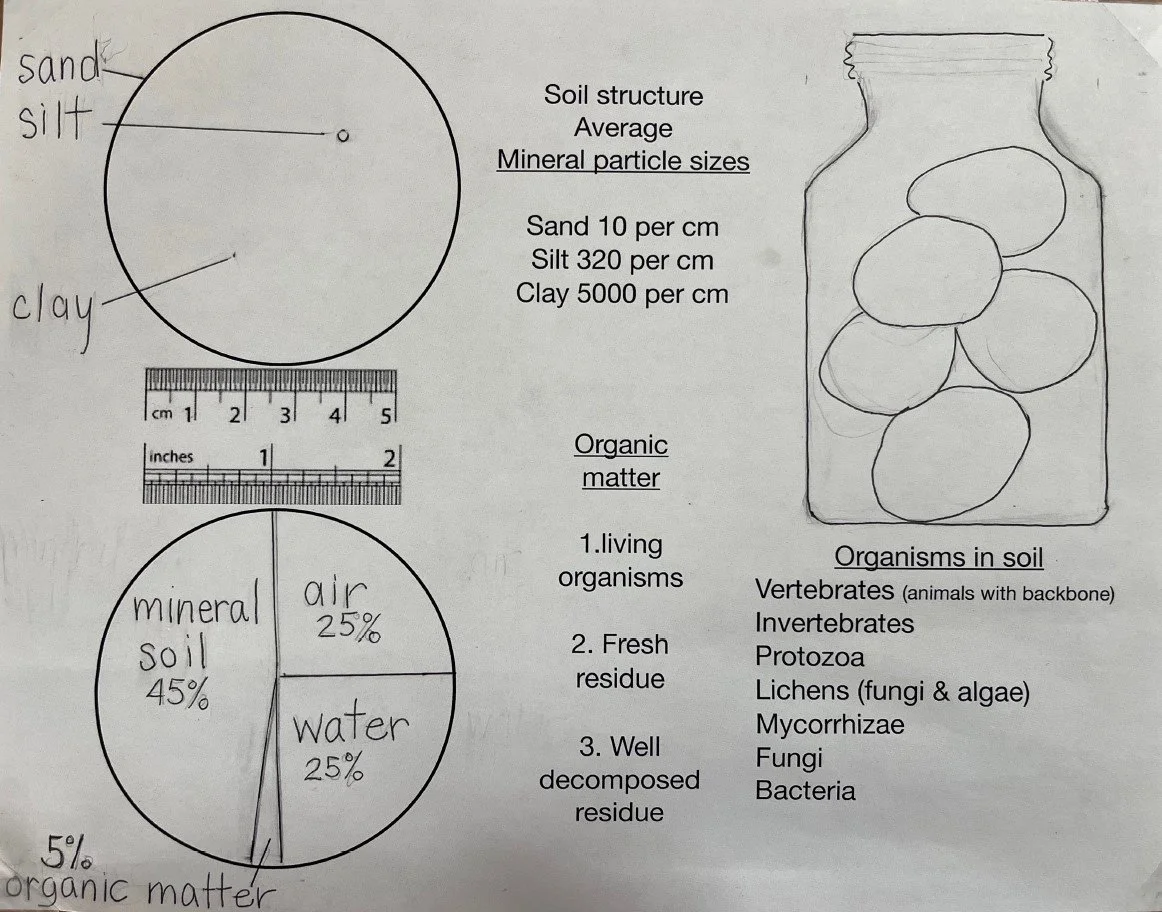 sand
silt
clay
Soil structure
Average
Mineral particle sizes
Sand 10 per cm
Silt 320 per cm
Clay 5000 per cm
cm 1 2 3 4 5
inches 1 2
mineral
soil
45%
air
25%
water
25%
5%
organic matter
Organic
matter
1.living
organisms
2. Fresh
residue
3. Well
decomposed
residue
Organisms in soil
Vertebrates (animals with backbone)
Invertebrates
Protozoa
Lichens (fungi & algae)
Mycorrhizae
Fungi
Bacteria